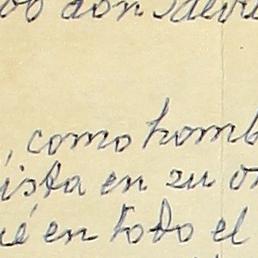 don Salv
, como homb
ista en su o
ué en todo el